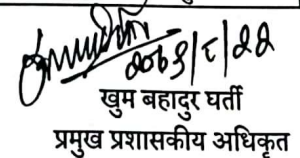 २०७९/८/२२
खुम बहादुर घर्ती
प्रमुख प्रशासकीय अधिकृत